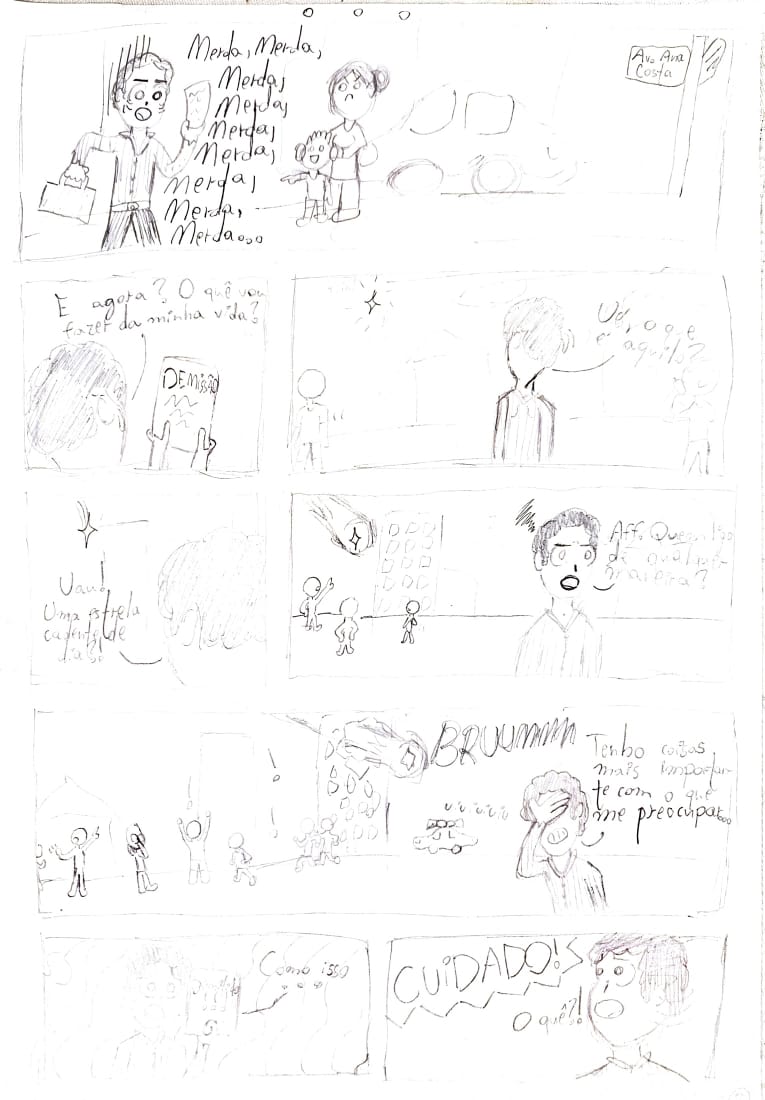 Merda, Merda,
Merda,
Merda,
Merda,
Merda,
Merda,
Merda,
Merda...
Av. Ana
Costa
E agora? O quê vou
fazer da minha vida?
DEMISSÃO
o que
é aquilo?
Uau!
Uma estrela
cadente de
dia?!
Aff. Quem liga
de qualquer
maneira?
BRUUMMMM
Tenho coisas
mais importan-
te com o que
me preocupar...
Como isso
...
CUIDADO!
O quê?!